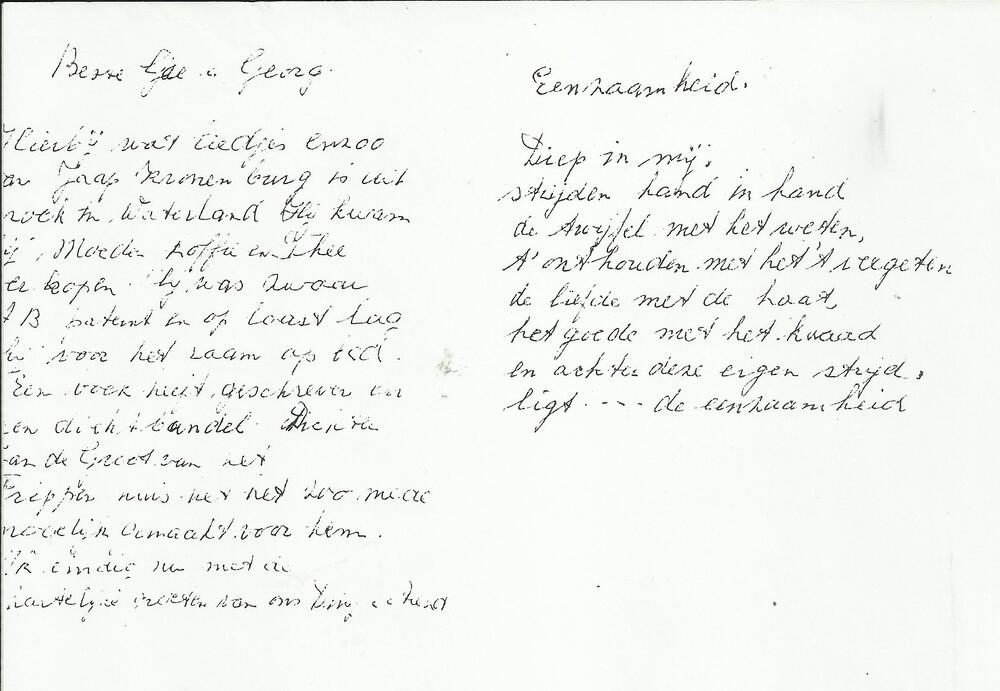 Beste Gre Georg.
Hierbij wat liedjes enzoo
Jaap Kronenburg is uit
Broek in Waterland Hij kwam
Moeder Koffie en Thee
kopen. hij was zwaar
patient en op laast lag
hij voor het raam op bed.
Een boek heit geschreven en
een dichtbundel
van de Groot van het
huis het het zoo mede
mogelijk gemaakt voor hem.
Ik eindig nu met de
hartelijke groeten van ons
Eenzaamheid.
Diep in mij.
strijden hand in hand
de twijfel met het weten,
t' onthouden met het 't vergeten
de liefde met de haat,
het goede met het kwaad
en achter deze eigen strijd,
ligt .... de eenzaamheid